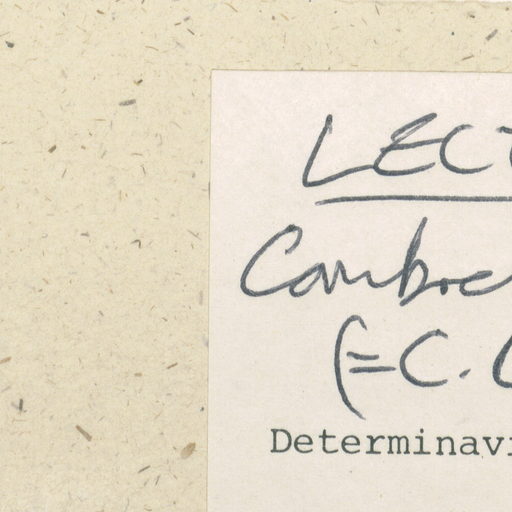 LECT
Combre
(= C. C
Determinavi